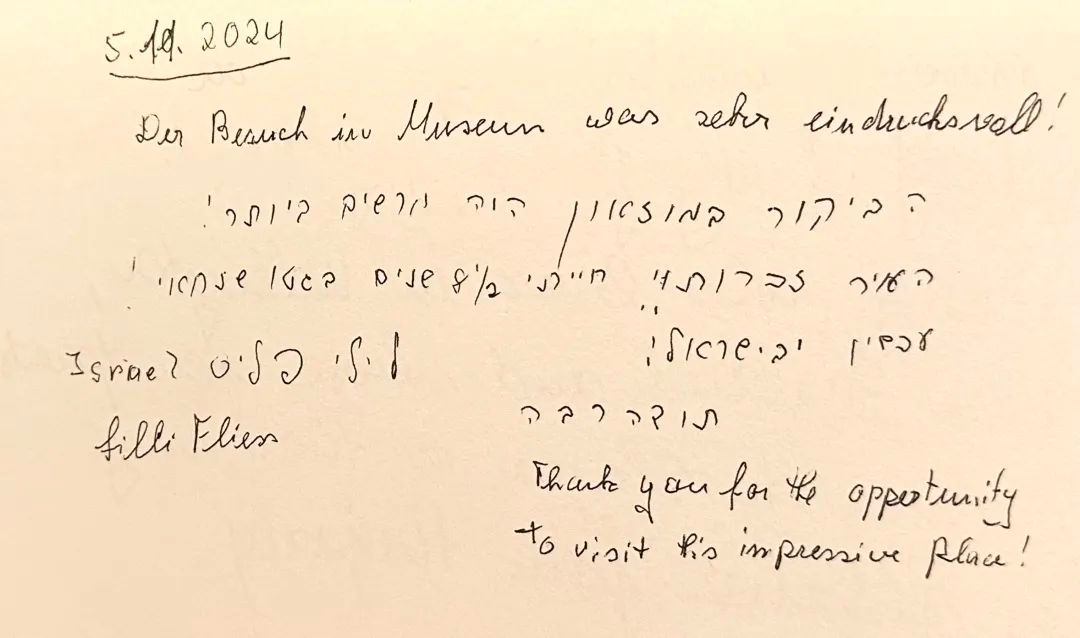 5.11.2024
Der Besuch im Museum was sehr eindrucksvoll!
הביקור במוזאון היה מרשים ביותר!
העיר זכרונותי חייתי 8 שנים בגטו שנחאי!
עכשיו בישראל!
לילי פליס Israel
תודה רבה
Lilli Fliess
Thank you for the opportunity
to visit this impressive place!